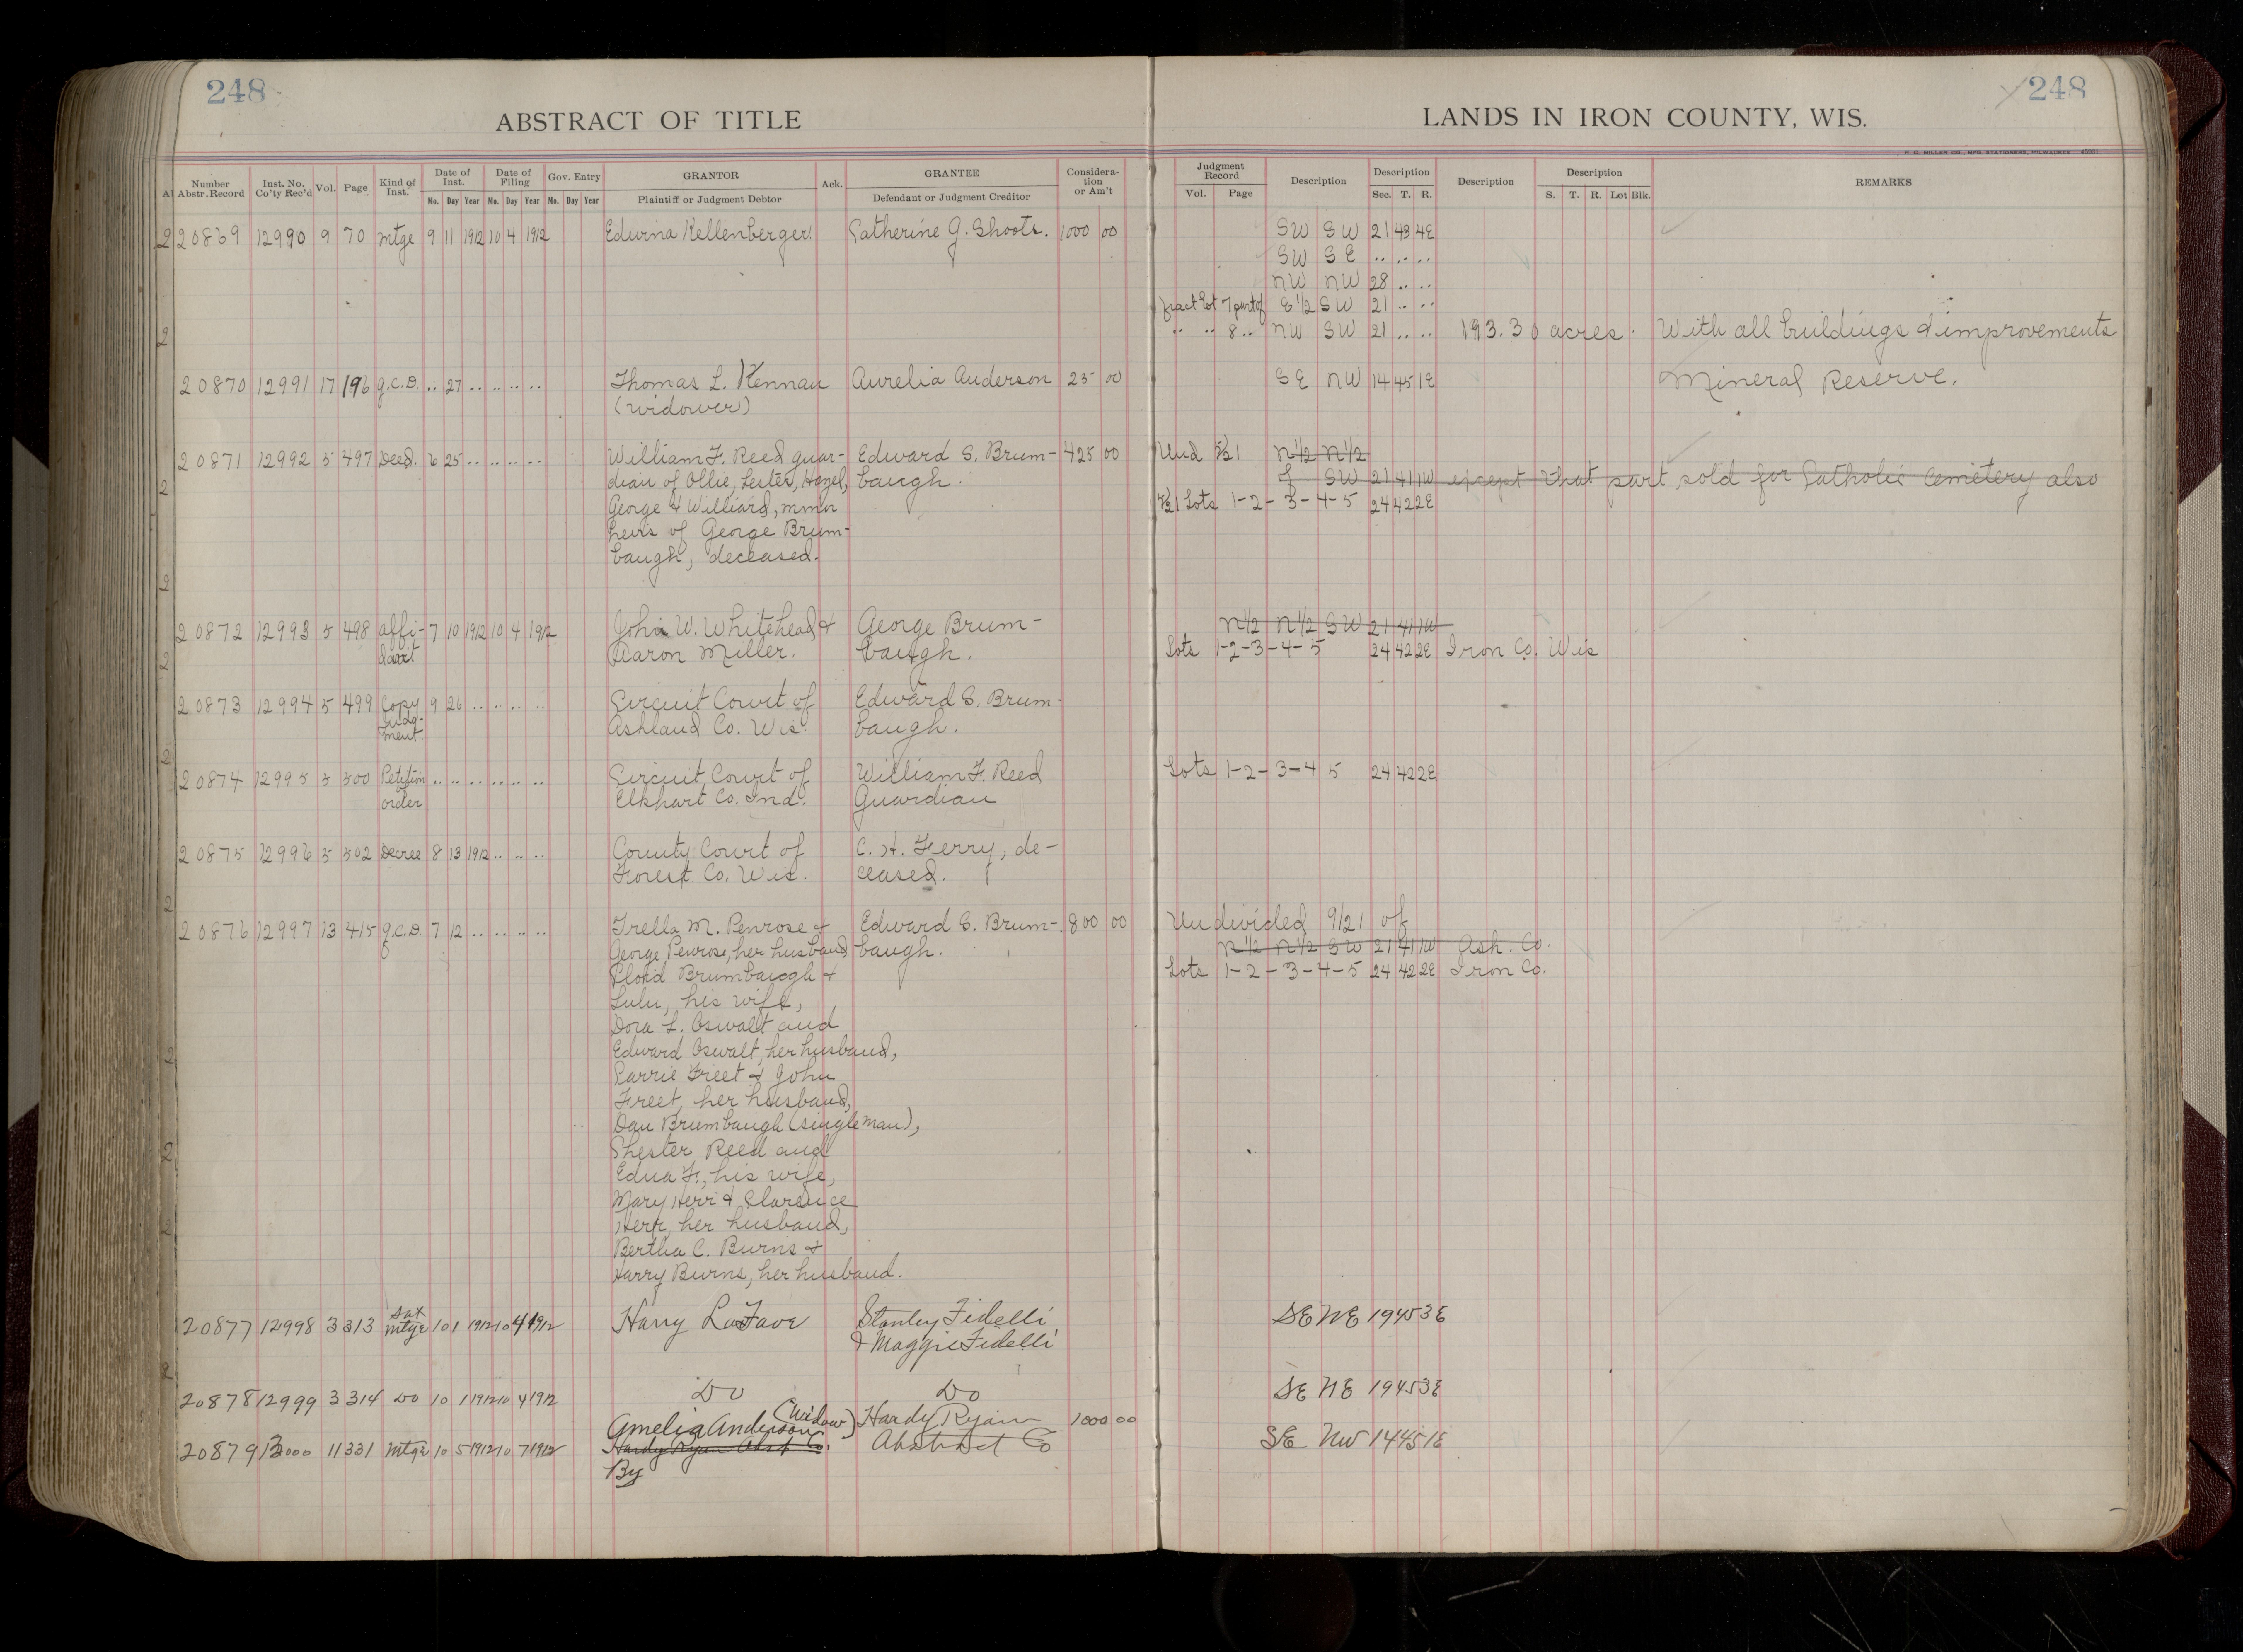 248
248
ABSTRACT OF TITLE
LANDS IN IRON COUNTY, WIS.
H. G. MILLER CO., MFG. STATIONERS, MILWAUKEE
Number Abstr. Record Inst. No. Co'ty Rec'd Vol. Page Kind of Inst. Date of Inst. Mo. Day Year Date of Filing Mo. Day Year Gov. Entry Mo. Day Year GRANTOR Plaintiff or Judgment Debtor Ack. GRANTEE Defendant or Judgment Creditor Considera-tion or Am't
Judgment Record Vol. Page Description Description Sec. T. R. Description Description S. T. R. Lot Blk. REMARKS
20869 12990 9 70 mtge 9 11 1912 10 4 1912 Edwina Kellenberger. Catherine G. Shoots. 1000 00 SW SW 21 43 4E
SW SE .. .. ..
NW NW 28 .. ..
fract Lot 7 part of E 1/2 SW 21 .. ..
.. .. 8 .. NW SW 21 .. .. 193.30 acres. With all buildings & improvements
20870 12991 17 196 Q.C.D. .. 27 .. .. .. .. Thomas L. Kennan Aurelia Anderson 25 00 SE NW 14 45 1E Mineral Reserve.
(widower)
20871 12992 5 497 Deed. 6 25 .. .. .. .. William F. Reed guar- Edward S. Brum- 425 00 Und 5/21 N 1/2 N 1/2
dian of Ollie, Lester, Hazel, baugh. of SW 21 41 1W except that part sold for Catholic Cemetery also
George & Williard, minor 5/21 Lots 1-2-3-4-5 24 42 2E
heirs of George Brum-
baugh, deceased.
20872 12993 5 498 affi- 7 10 1912 10 4 1912 John W. Whitehead & George Brum- N 1/2 N 1/2 SW 21 41 1W
davit Aaron Miller. baugh. Lots 1-2-3-4-5 24 42 2E Iron Co. Wis
20873 12994 5 499 Copy 9 26 .. .. .. .. Circuit Court of Edward S. Brum-
Judg-
ment Ashland Co. Wis. baugh.
20874 12995 5 500 Petition .. .. .. .. .. .. Circuit Court of William F. Reed Lots 1-2-3-4 5 24 42 2E
order Elkhart Co. Ind. Guardian
20875 12996 5 502 Decree 8 13 1912 .. .. .. County Court of C. H. Ferry, de-
Forest Co. Wis. ceased.
20876 12997 13 415 Q.C.D. 7 12 .. .. .. .. Trella M. Penrose & Edward S. Brum- 800 00 Undivided 9/21 of
George Penrose, her husband baugh. N 1/2 N 1/2 SW 21 41 1W Ash. Co.
Floid Brumbaugh & Lots 1-2-3-4-5 24 42 2E Iron Co.
Lulu, his wife,
Dora L. Oswalt and
Edward Oswalt, her husband,
Carrie Freet & John
Freet, her husband,
Dan Brumbaugh (single man),
Chester Reed and
Edna F., his wife,
Mary Herr & Clarence
Herr, her husband,
Bertha C. Burns &
Harry Burns, her husband.
20877 12998 3 313 Sat mtge 10 1 1912 10 4 1912 Harry LaFave Stanley Fidelli SE NE 19 45 3E
& Maggie Fidelli
20878 12999 3 314 Do 10 1 1912 10 4 1912 Do Do SE NE 19 45 3E
Amelia Anderson (Widow) Hardy Ryan 1000 00
20879 13000 11 331 Mtge 10 5 1912 10 7 1912 Hardy Ryan Abst Co. Abstract Co SE NW 14 45 1E
By